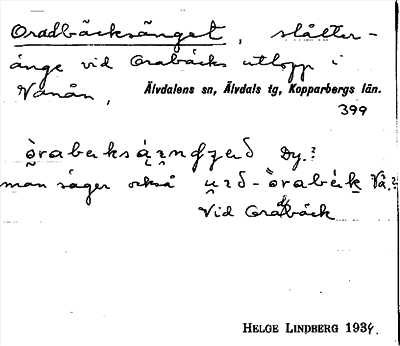 Oradbäcksänget, slåtter-
änge vid Orabäcks utlopp i
Vanån, Älvdalens sn, Älvdals tg, Kopparbergs län.
399
Dy.?
man säger också Vå.?
Vid Oradbäck
HELGE LINDBERG 1934.